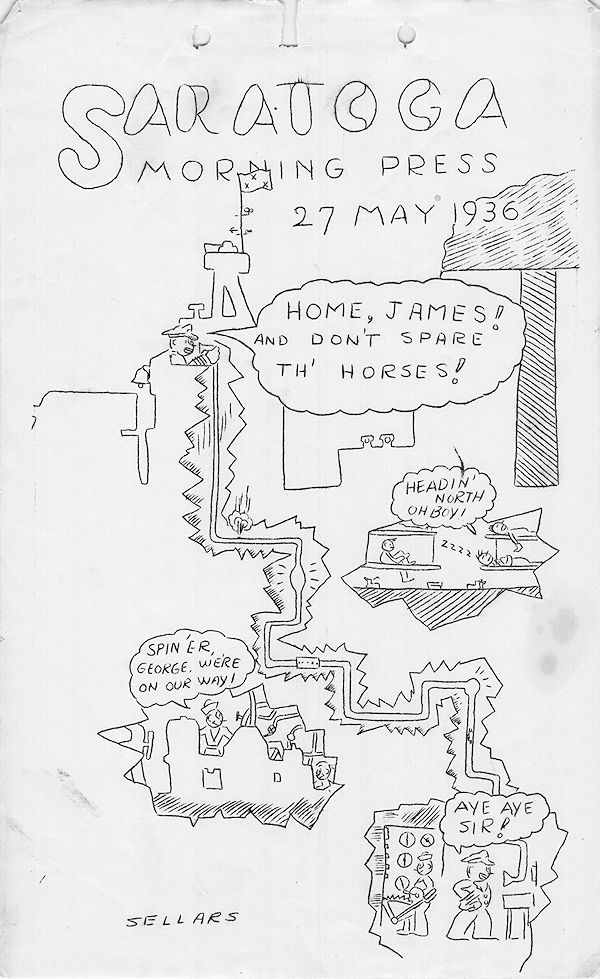 SARATOGA
MORNING PRESS
27 MAY 1936
HOME, JAMES!
AND DON'T SPARE
TH' HORSES!
HEADIN'
NORTH
OH BOY!
ZZZZ
SPIN 'ER,
GEORGE. WE'RE
ON OUR WAY!
AYE AYE
SIR!
SELLARS